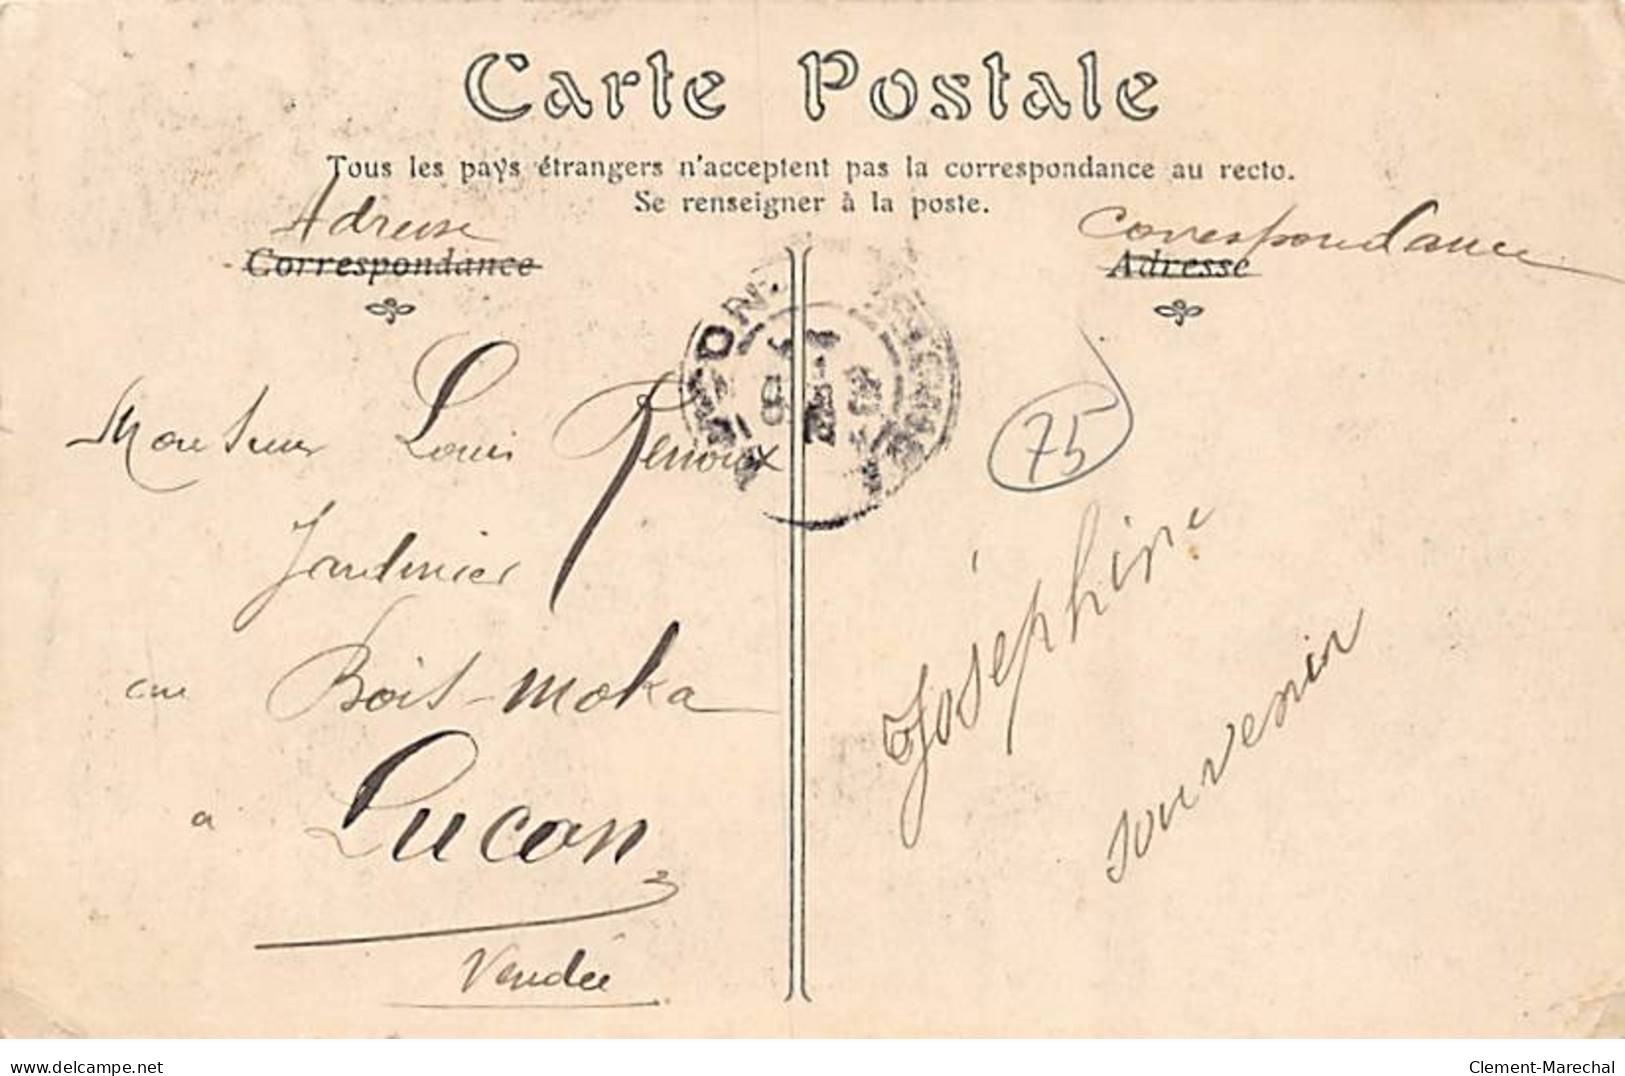 Carte Postale
Tous les pays étrangers n'acceptent pas la correspondance au recto.
Se renseigner à la poste.
Adresse
Correspondance
Correspondance
Adresse
75
Monsieur Louis Renoux
Jardinier
Bois-moka
a Luçon
Vendée
Joséphine
souvenir
delcampe.net
Clement-Marechal